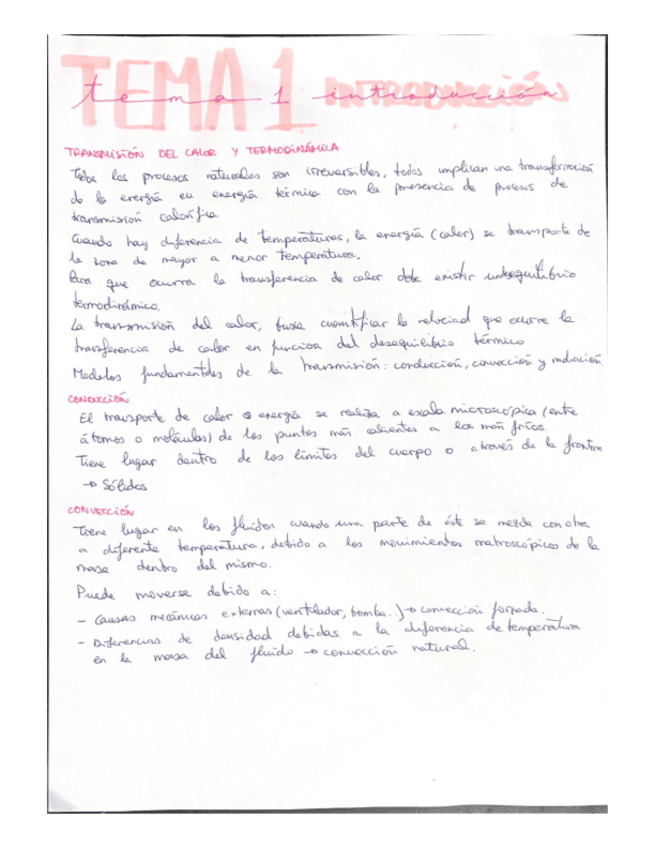 TEMA 1 INTRODUCCIÓN
tema 1 introducción
TRANSMISIÓN DEL CALOR Y TERMODINÁMICA
Todos los procesos naturales son irreversibles, todos implican una transformación
de la energía en energía térmica con la presencia de procesos de
transmisión calorífica
Cuando hay diferencia de temperaturas, la energía (calor) se transporte de
la zona de mayor a menor temperatura.
Para que ocurra la transferencia de calor debe existir un desequilibrio
termodinámico.
La transmisión del calor, busca cuantificar la velocidad que ocurre la
transferencia de calor en funcion del desequilibrio térmico
Modelos fundamentales de la transmisión: conducción, convección y radiación
CONDUCCIÓN
El transporte de calor o energía se realiza a escala microscópica (entre
átomos o moléculas) de los puntos más calientes a los más fríos.
Tiene lugar dentro de los límites del cuerpo o a través de la frontera
→ Sólidos
CONVECCIÓN
Tiene lugar en los fluidos cuando una parte de éste se mezcla con otra
a diferente temperatura, debido a los movimientos macroscópicos de la
masa dentro del mismo.
Puede moverse debido a:
- Causas mecánicas externas (ventilador, bomba..) → convección forzada.
- Diferencias de densidad debidas a la diferencia de temperatura
en la masa del fluido → convección natural.